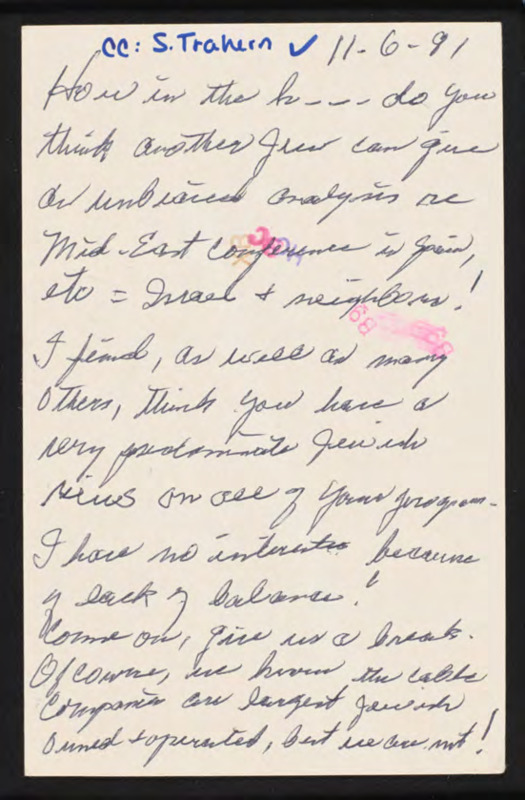 cc: S. Trahern ✓ 11-6-91
How in the h--- do you
think another Jew can give
an unbiased analysis re
Mid-East Conference in Spain,
etc = Israel + neighbors!
I find, as well as many
others, think you have a
very predominate Jewish
views on all of your program-
I have no interests because
of lack of balance!
Come on, give us a break.
Of course, we know the cable
Companies are largest Jewish
owned + operated, but we are not!